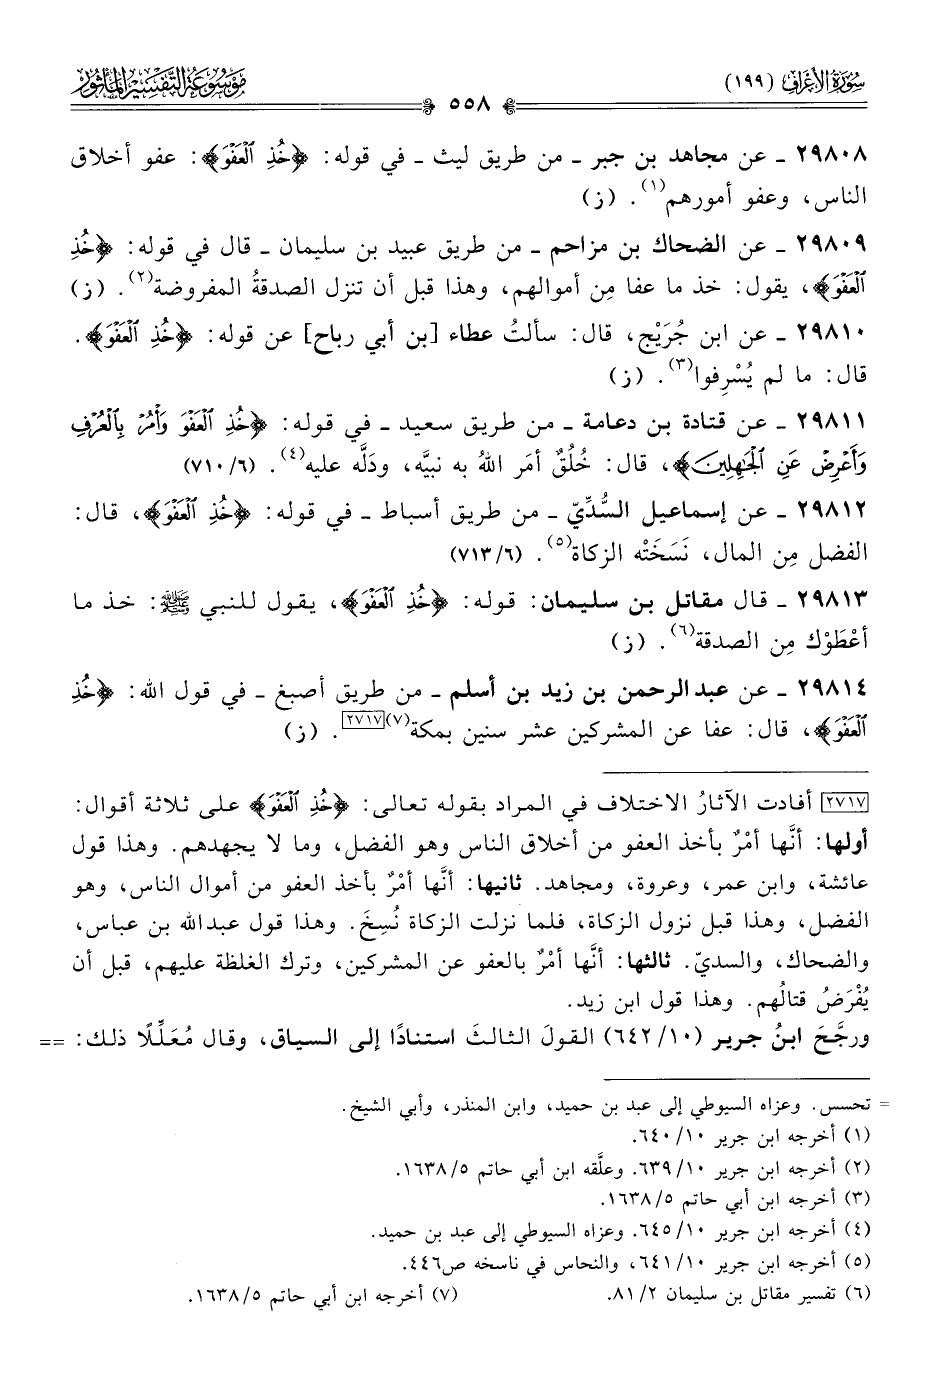 سُورَةُ الأَعْرَاف (١٩٩)
٥٥٨
مَوْسُوعَة التَّفْسِيرُ المَأْثُور
٢٩٨٠٨ ـ عن مجاهد بن جبر ـ من طريق ليث ـ في قوله: ﴿خُذِ ٱلْعَفْوَ﴾: عفو أخلاق
الناس، وعفو أمورهم(١). (ز)
٢٩٨٠٩ ـ عن الضحاك بن مزاحم ـ من طريق عبيد بن سليمان ـ قال في قوله: ﴿خُذِ
ٱلْعَفْوَ﴾، يقول: خذ ما عفا مِن أموالهم، وهذا قبل أن تنزل الصدقةُ المفروضة(٢). (ز)
٢٩٨١٠ ـ عن ابن جُرَيْج، قال: سألتُ عطاء [بن أبي رباح] عن قوله: ﴿خُذِ ٱلْعَفْوَ﴾.
قال: ما لم يُسْرِفوا(٣). (ز)
٢٩٨١١ ـ عن قتادة بن دعامة ـ من طريق سعيد ـ في قوله: ﴿خُذِ ٱلْعَفْوَ وَأْمُرْ بِٱلْعُرْفِ
وَأَعْرِضْ عَنِ ٱلْجَٰهِلِينَ﴾، قال: خُلُقٌ أمَر اللهُ به نبيَّه، ودَلَّه عليه(٤). (٦/ ٧١٠)
٢٩٨١٢ ـ عن إسماعيل السُّدِّيّ ـ من طريق أسباط ـ في قوله: ﴿خُذِ ٱلْعَفْوَ﴾، قال:
الفضل مِن المال، نَسَخَتْه الزكاة(٥). (٦/ ٧١٣)
٢٩٨١٣ ـ قال مقاتل بن سليمان: قوله: ﴿خُذِ ٱلْعَفْوَ﴾، يقول للنبي ﷺ: خذ ما
أعْطَوْك مِن الصدقة(٦). (ز)
٢٩٨١٤ ـ عن عبدالرحمن بن زيد بن أسلم ـ من طريق أصبغ ـ في قول الله: ﴿خُذِ
ٱلْعَفْوَ﴾، قال: عفا عن المشركين عشر سنين بمكة(٧)[٢٧١٧]. (ز)
[٢٧١٧] أفادت الآثارُ الاختلاف في المراد بقوله تعالى: ﴿خُذِ ٱلْعَفْوَ﴾ على ثلاثة أقوال:
أولها: أنَّها أمْرٌ بأخذ العفو من أخلاق الناس وهو الفضل، وما لا يجهدهم. وهذا قول
عائشة، وابن عمر، وعروة، ومجاهد. ثانيها: أنَّها أمْرٌ بأخذ العفو من أموال الناس، وهو
الفضل، وهذا قبل نزول الزكاة، فلما نزلت الزكاة نُسِخَ. وهذا قول عبدالله بن عباس،
والضحاك، والسديّ. ثالثها: أنَّها أمْرٌ بالعفو عن المشركين، وترك الغلظة عليهم، قبل أن
يُفْرَضُ قتالُهم. وهذا قول ابن زيد.
ورجَّحَ ابنُ جرير (١٠/ ٦٤٢) القولَ الثالثَ استنادًا إلى السياق، وقال مُعَلِّلًا ذلك: ==
= تحسس. وعزاه السيوطي إلى عبد بن حميد، وابن المنذر، وأبي الشيخ.
(١) أخرجه ابن جرير ١٠/ ٦٤٠.
(٢) أخرجه ابن جرير ١٠/ ٦٣٩. وعلَّقه ابن أبي حاتم ٥/ ١٦٣٨.
(٣) أخرجه ابن أبي حاتم ٥/ ١٦٣٨.
(٤) أخرجه ابن جرير ١٠/ ٦٤٥. وعزاه السيوطي إلى عبد بن حميد.
(٥) أخرجه ابن جرير ١٠/ ٦٤١، والنحاس في ناسخه ص٤٤٦.
(٦) تفسير مقاتل بن سليمان ٢/ ٨١. (٧) أخرجه ابن أبي حاتم ٥/ ١٦٣٨.